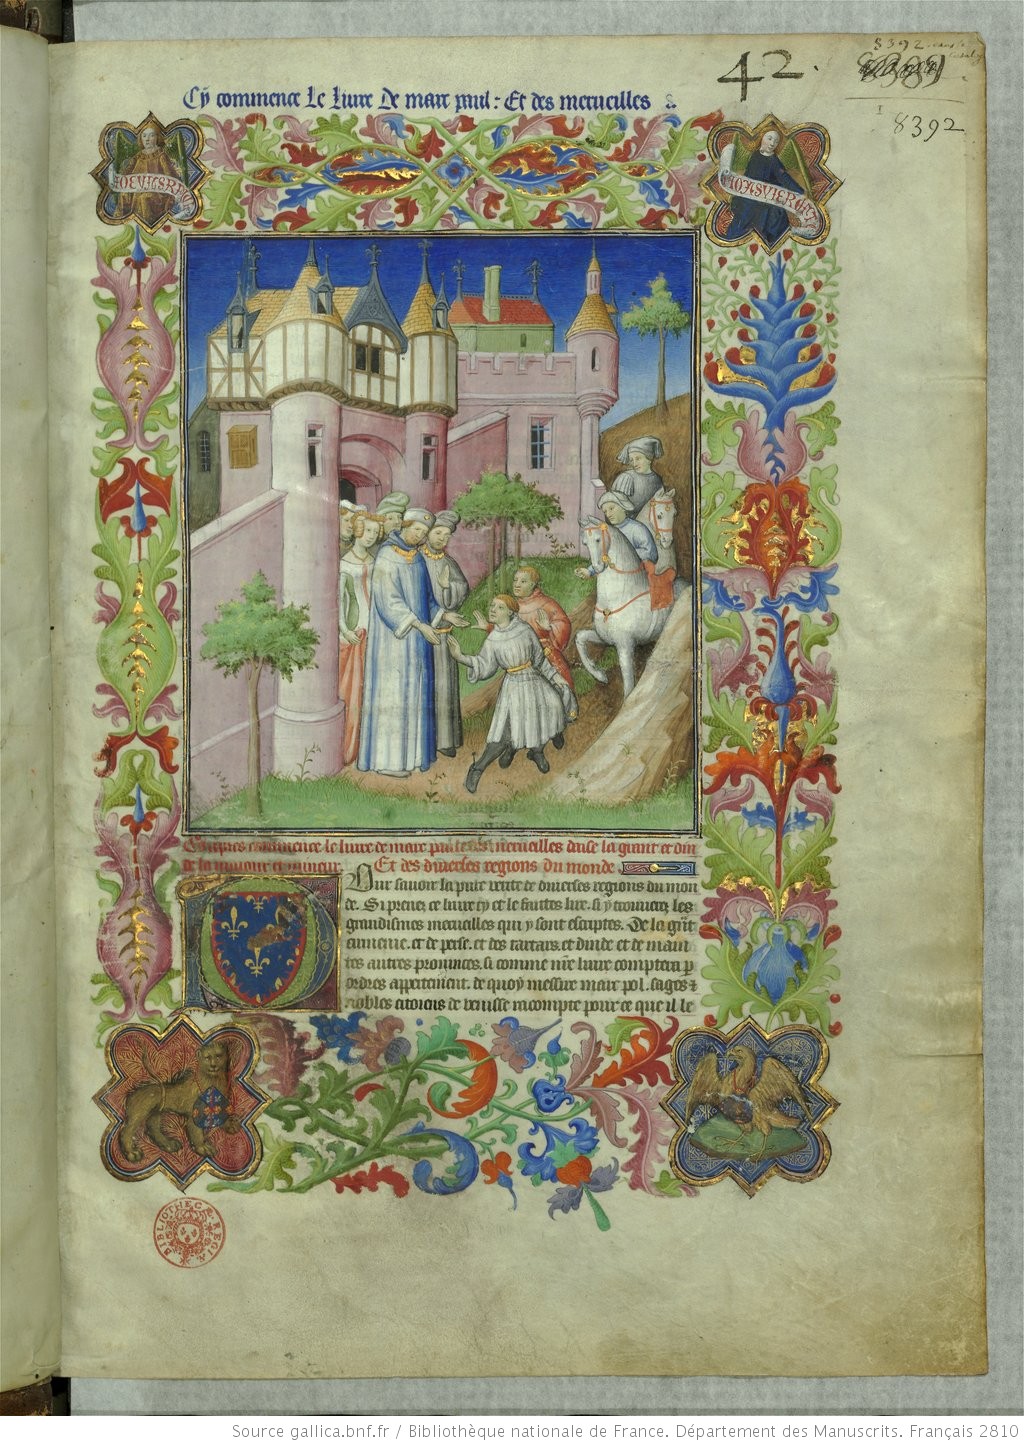 42.
8392
8392
Cy commence le liure de marc paul : Et des merueilles
commence le liure de marc paul merueilles daise la grant et din
de la maiour et mineur. Et des diuerses regions du monde
Pour sauoir la pure verite de diuerses regions du mon
de. Si prenez ce liure cy et le faittes lire. si y trouuerez les
grandismes merueilles qui y sont escriptes. De la grāt
armenie. et de perse. et des tartars. et dinde et de maint
tes autres prouinces. si comme nr̄e liure comptera p
ordres appertement. de quoy messire marc pol. sages ⁊
nobles citoiens de venisse racompte pour ce que il le
BIBLIOTHECÆ REGIÆ
Source gallica.bnf.fr / Bibliothèque nationale de France. Département des Manuscrits. Français 2810